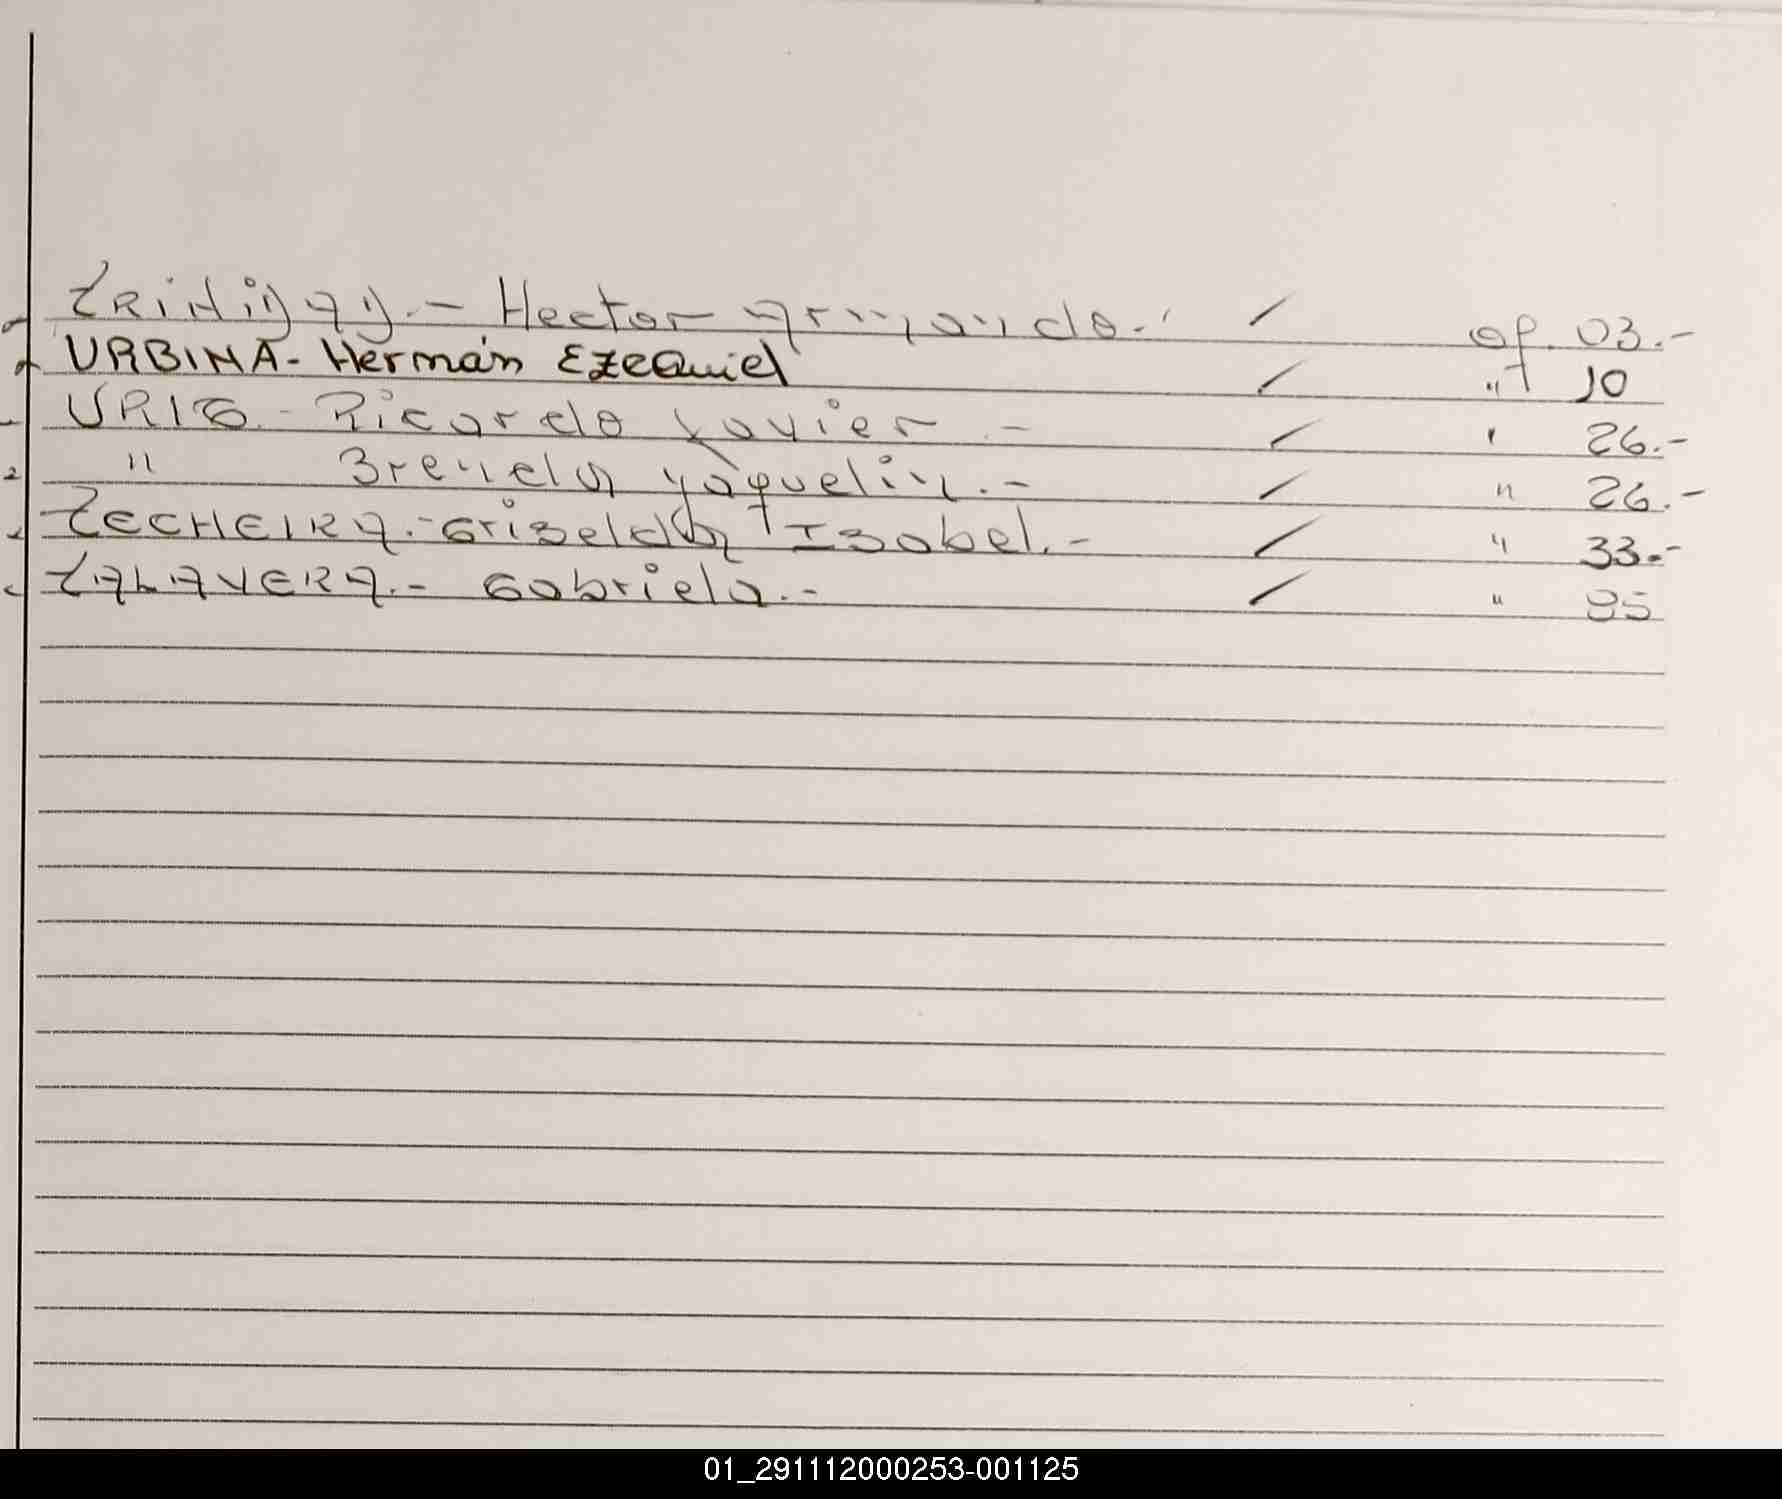 Hector Armando.- / of. 03.-
URBINA - Hernán Ezequiel / " 10
URIZ - Ricardo Javier - / " 26.-
" Brenda Yaquelin.- / " 26.-
TECHEIRA.- Griselda Isabel.- / " 33.-
TALAVERA.- Gabriela.- / " 95
01_291112000253-001125